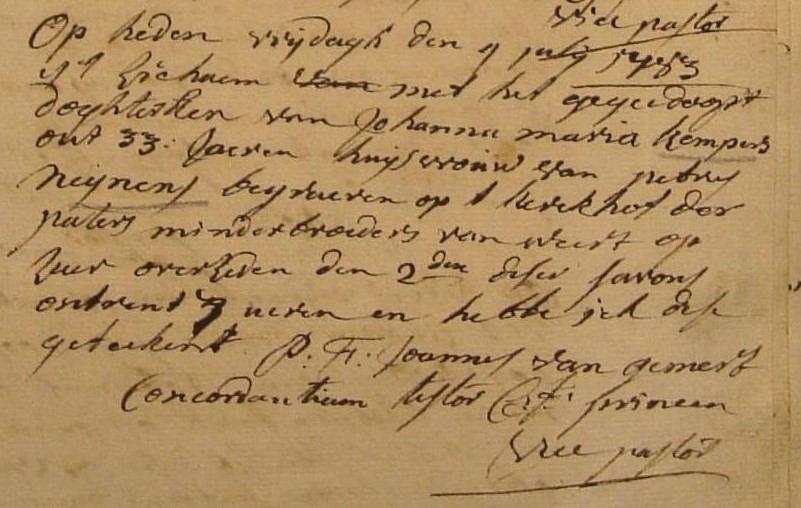 vice pastor
Op heden vrijdagh den 4 julij 1783
is 't lichaem van met het gegeedoopt
doghterken van Johanna maria kempers
out 33: Jaeren huijsvrouw van petrus
neijnens begraeven op t kerckhof der
paters minderbroeders van weert op
overleden den 2den deser savons
ontrent 7 ueren en hebbe ick dese
geteekent P. F: Joannes van gemert
Concordantiam testor princen
vice pastor